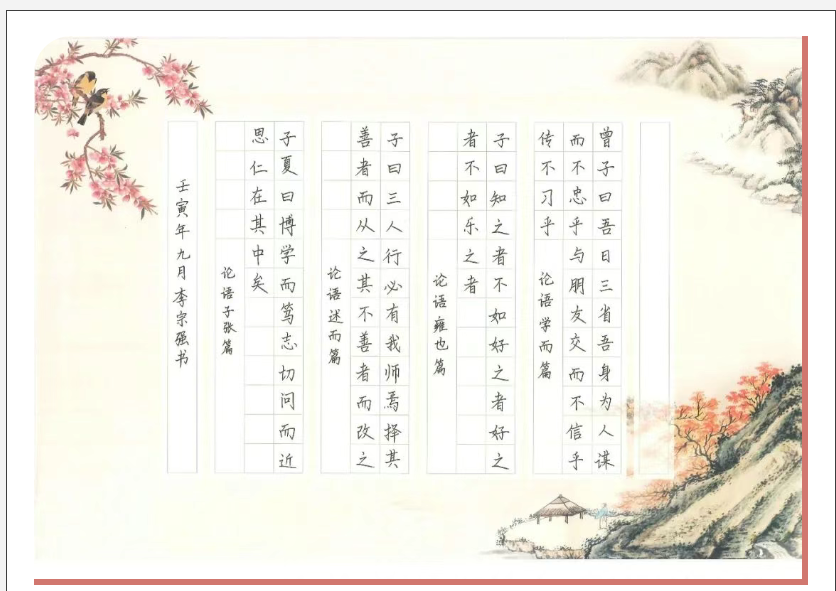 曾子曰吾日三省吾身为人谋
而不忠乎与朋友交而不信乎
传不习乎
论语学而篇
子曰知之者不如好之者好之
者不如乐之者
论语雍也篇
子曰三人行必有我师焉择其
善者而从之其不善者而改之
论语述而篇
子夏曰博学而笃志切问而近
思仁在其中矣
论语子张篇
壬寅年九月李宗强书